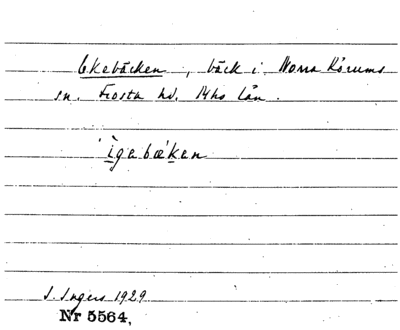 Ekebäcken, bäck i Norra Rörums
sn. Frosta hd. Mhs län.
ìgabæ̀kan
I. Ingers 1929
Nr 5564.